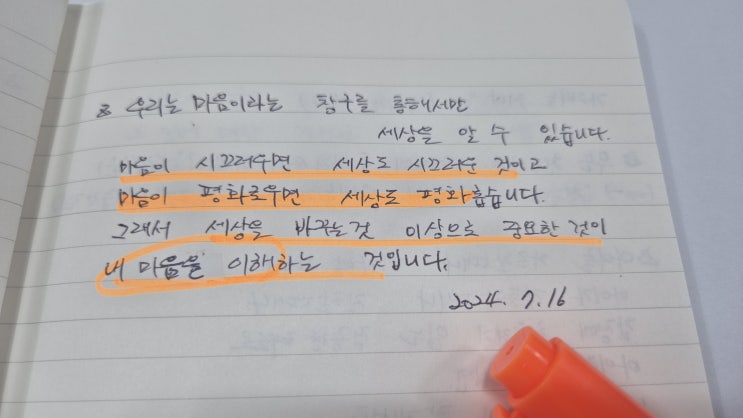 & 우리는 마음이라는 창구를 통해서만
세상을 알 수 있습니다.
마음이 시끄러우면 세상도 시끄러운 것이고
마음이 평화로우면 세상도 평화홉습니다.
그래서 세상을 바꾸는것 이상으로 중요한 것이
내 마음을 이해하는 것입니다.
2024. 7. 16